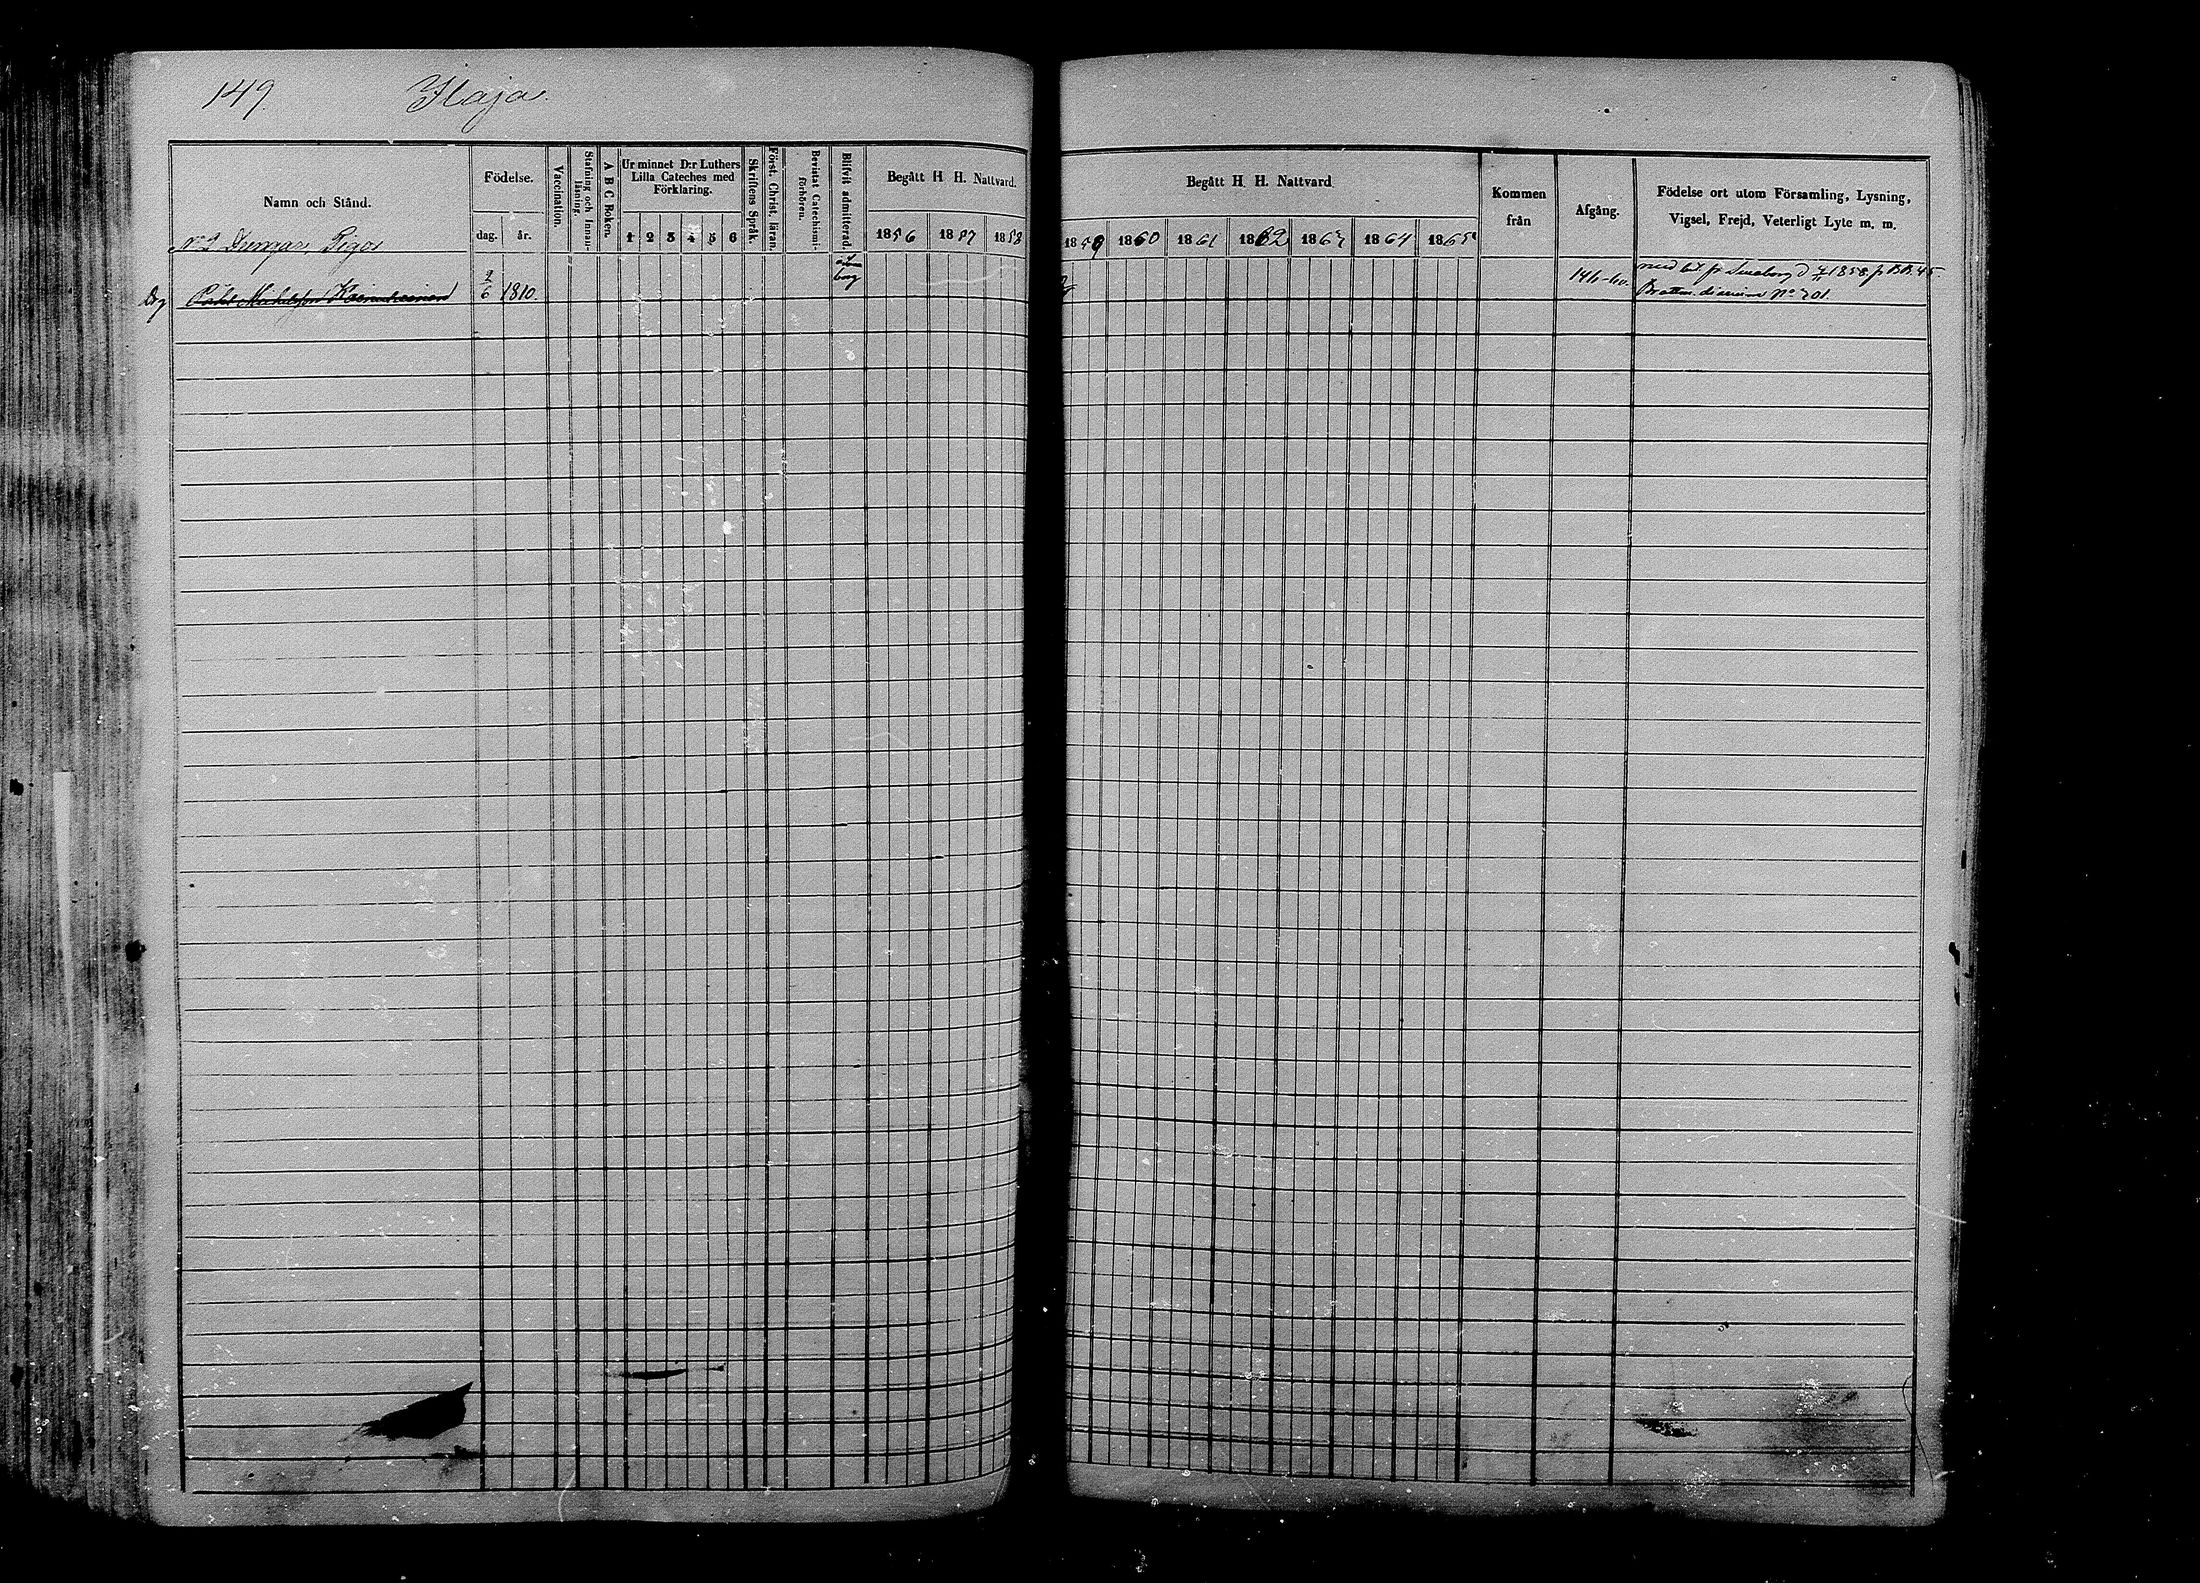 149. Ilaja.
Namn och Stånd.
Födelse.
dag. år.
Vaccination.
Stafning och Innanläsning.
A B C Boken.
Ur minnet D:r Luthers
Lilla Cateches med
Förklaring.
1 2 3 4 5 6
Skriftens Språk.
Först. Christ. läran.
Bevistat Catechismiförhören.
Blifvit admitterad.
Begått H H. Nattvard.
1856 1857 1858
Begått H H. Nattvard
1859 1860 1861 1862 1863 1864 1865
Kommen
från
Afgång.
Födelse ort utom Församling, Lysning,
Vigsel, Frejd, Veterligt Lyte m. m.
No 2 Drengar, Pigor
Drg 2/6 1810. 146-60. 1858 p. BB. 45
No 701.